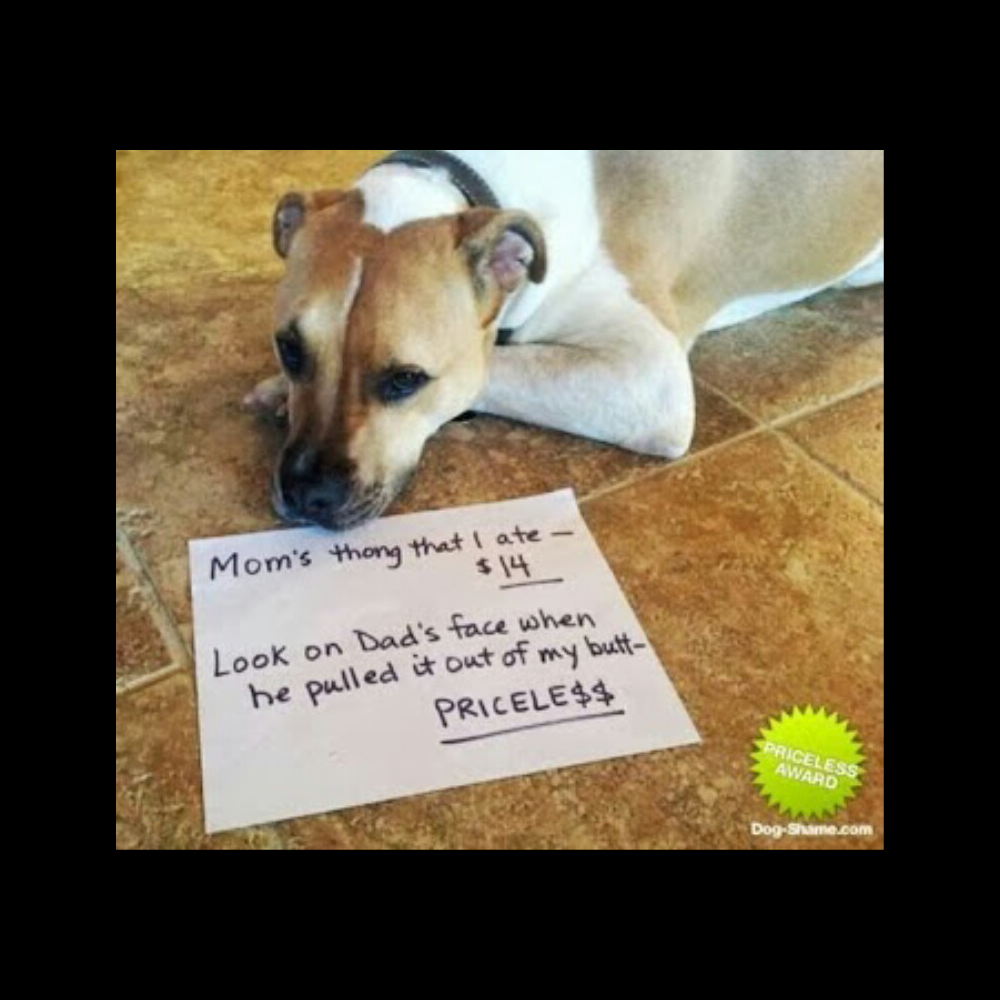 Mom's thong that I ate —
$14
Look on Dad's face when
he pulled it out of my butt-
PRICELE$$
PRICELESS
AWARD
Dog-Shame.com